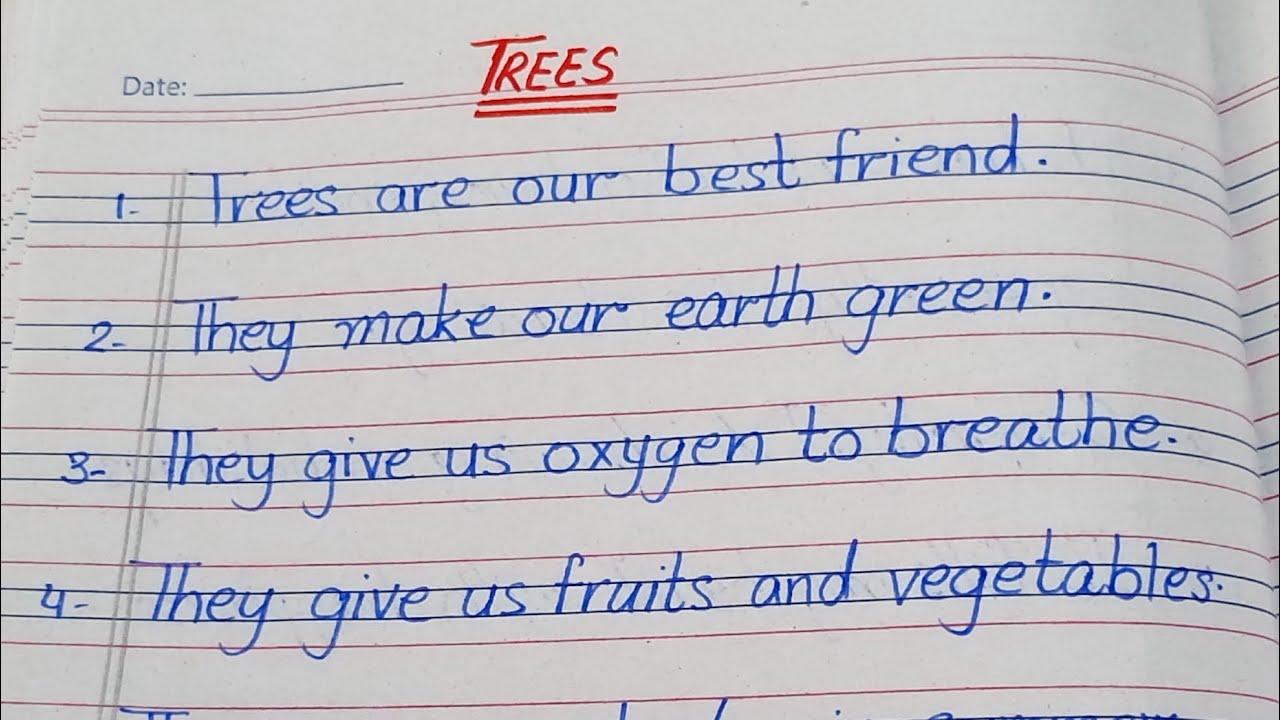 Date: TREES
1. Trees are our best friend.
2- They make our earth green.
3- They give us oxygen to breathe.
4- They give us fruits and vegetables.